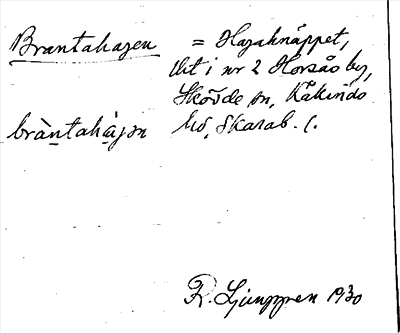 Brantahagen = Hagaknäppet,
Utt i nr 2 Horsås by,
Skövde sn, Kåkinds
hd, Skarab. l.
bràntahàgən
R. Ljunggren 1930